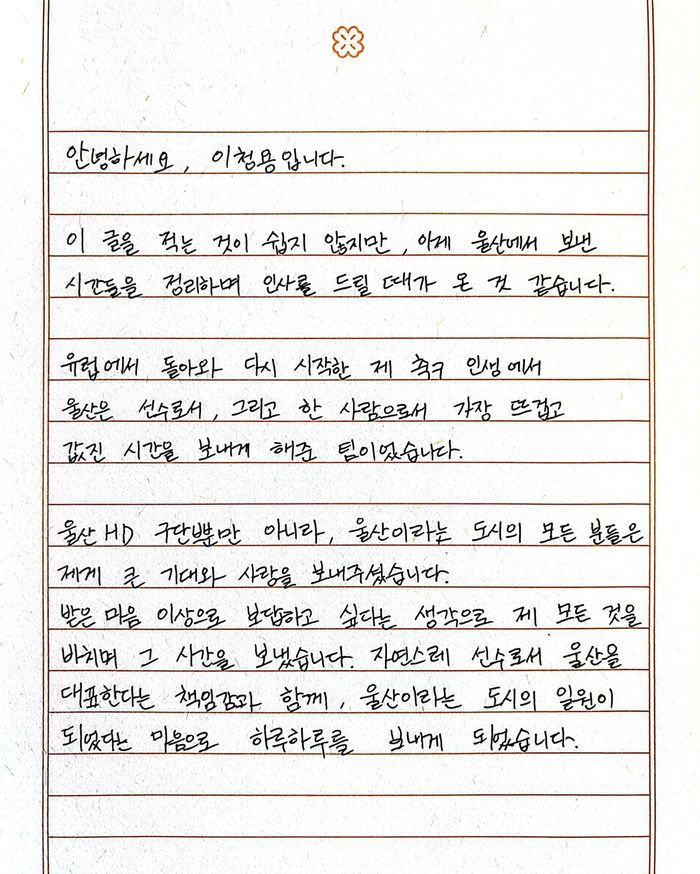 안녕하세요, 이청용입니다.
이 글을 적는 것이 쉽지 않지만, 이제 울산에서 보낸
시간들을 정리하며 인사를 드릴 때가 온 것 같습니다.
유럽에서 돌아와 다시 시작한 제 축구 인생에서
울산은 선수로서, 그리고 한 사람으로서 가장 뜨겁고
값진 시간을 보내게 해준 팀이었습니다.
울산 HD 구단뿐만 아니라, 울산이라는 도시의 모든 분들은
제게 큰 기대와 사랑을 보내주셨습니다.
받은 마음 이상으로 보답하고 싶다는 생각으로 제 모든 것을
바치며 그 시간을 보냈습니다. 자연스레 선수로서 울산을
대표한다는 책임감과 함께, 울산이라는 도시의 일원이
되었다는 마음으로 하루하루를 보내게 되었습니다.